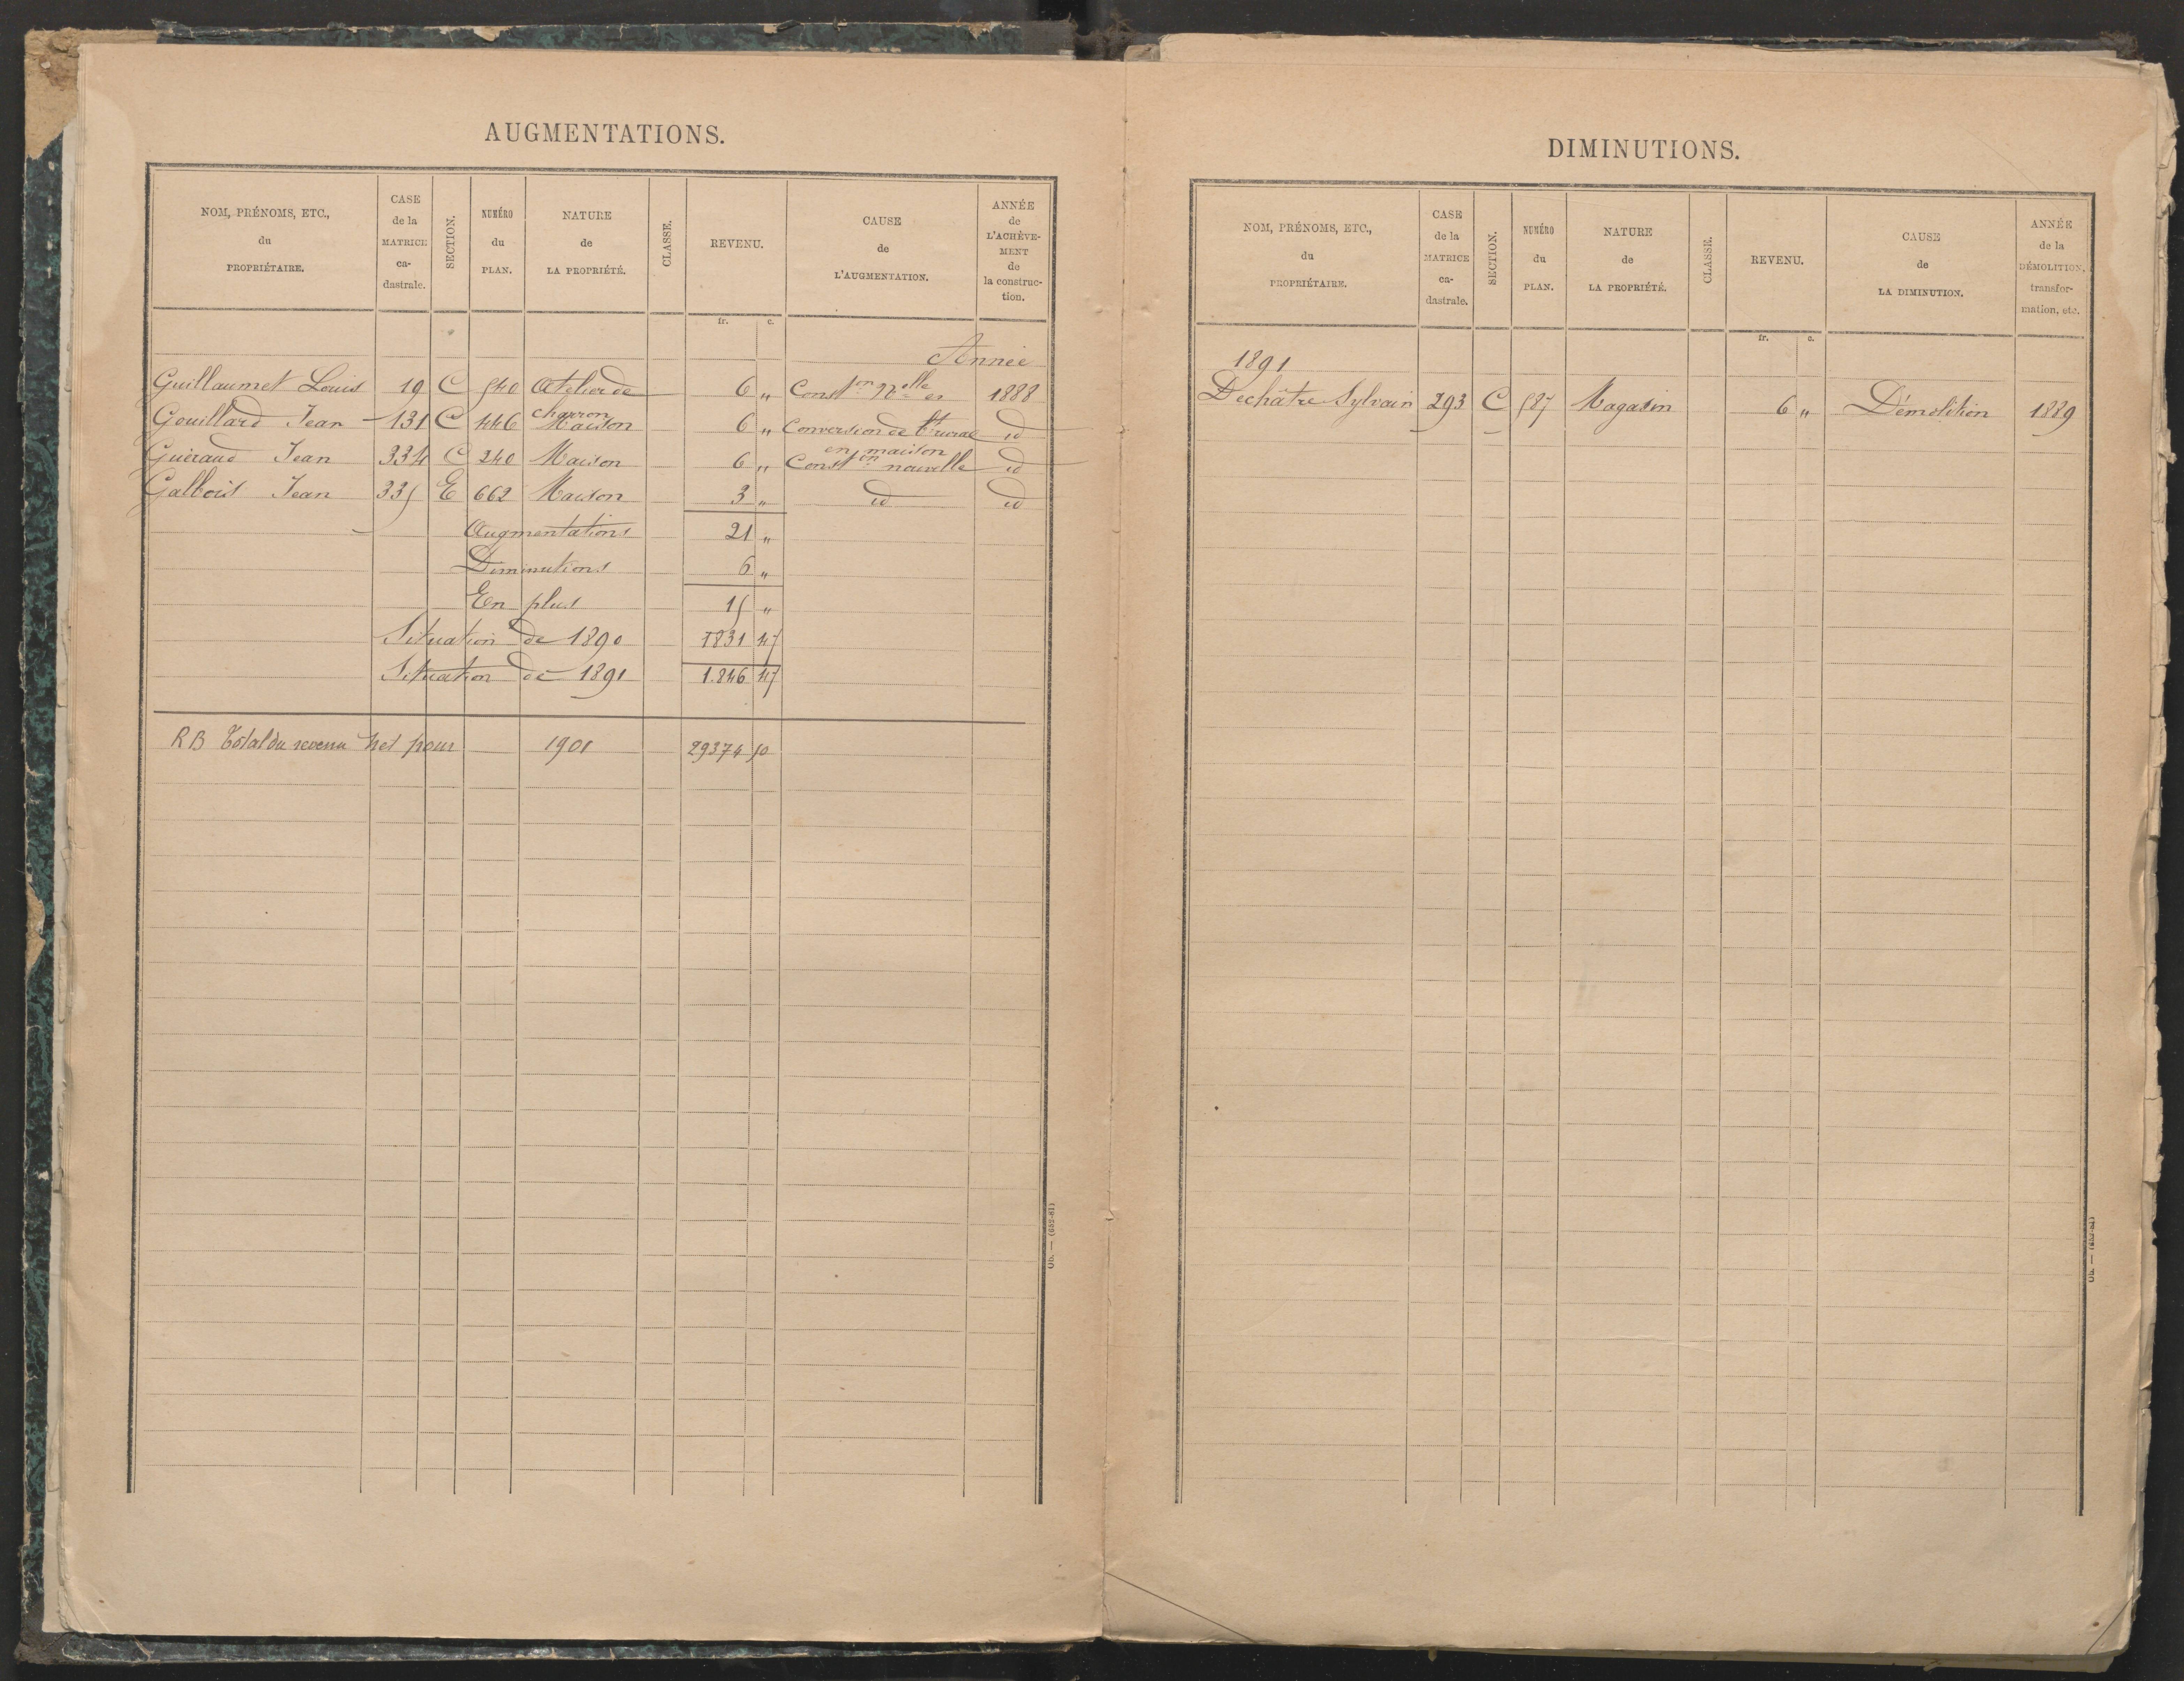 AUGMENTATIONS.
NOM, PRÉNOMS, ETC., du PROPRIÉTAIRE. | CASE de la MATRICE ca-dastrale. | SECTION. | NUMÉRO du PLAN. | NATURE de LA PROPRIÉTÉ. | CLASSE. | REVENU. | CAUSE de L'AUGMENTATION. | ANNÉE de L'ACHÈVE-MENT de la construc-tion.
fr. c.
Année
Guillaumet Louis 19 C 540 Atelier de 6 " Const.on N.elle en 1888
charron
Gouillard Jean 131 C 446 Maison 6 " Conversion de bt rural id
en maison
Guéraud Jean 334 C 240 Maison 6 " Const.on nouvelle id
Galbois Jean 335 E 662 Maison 3 " id id
Augmentations 21 "
Diminutions 6 "
En plus 15 "
Situation de 1890 1831 45
Situation de 1891 1.846 45
RB Total du revenu net pour 1901 29374 50
Ob. — (652-81)
DIMINUTIONS.
NOM, PRÉNOMS, ETC., du PROPRIÉTAIRE. | CASE de la MATRICE ca-dastrale. | SECTION. | NUMÉRO du PLAN. | NATURE de LA PROPRIÉTÉ. | CLASSE. | REVENU. | CAUSE de LA DIMINUTION. | ANNÉE de la DÉMOLITION, transfor-mation, etc.
fr. c.
1891
Dechâtre Sylvain 293 C 587 Magasin 6 " Démolition 1889
Ob. — (652-81)